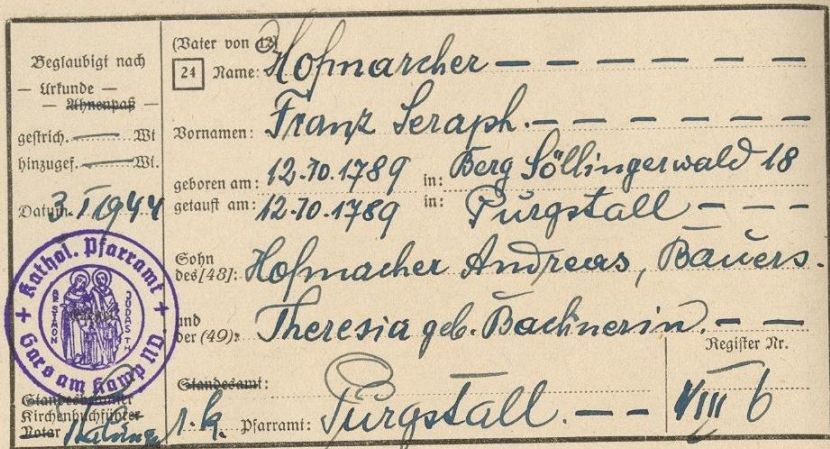 Beglaubigt nach
— Urkunde —
— Ahnenpaß —
gestrich. Wt
hinzugef. Wt.
Datum 3. I 1944
Kathol. Pfarramt
Gars am Kamp ND
Standesbeamter
Kirchenbuchführer
Notar
(Vater von 12)
24 Name: Hofmarcher — — — — — —
Vornamen: Franz Seraph. — — — — —
geboren am: 12.10.1789 in: Berg Söllingerwald 18
getauft am: 12.10.1789 in: Purgstall — — —
Sohn
des (48): Hofmacher Andreas, Bauers.
und
der (49): Theresia geb. Bachnerin. — —
Register Nr.
Standesamt:
r. k. Pfarramt: Purgstall. — — VIII 6